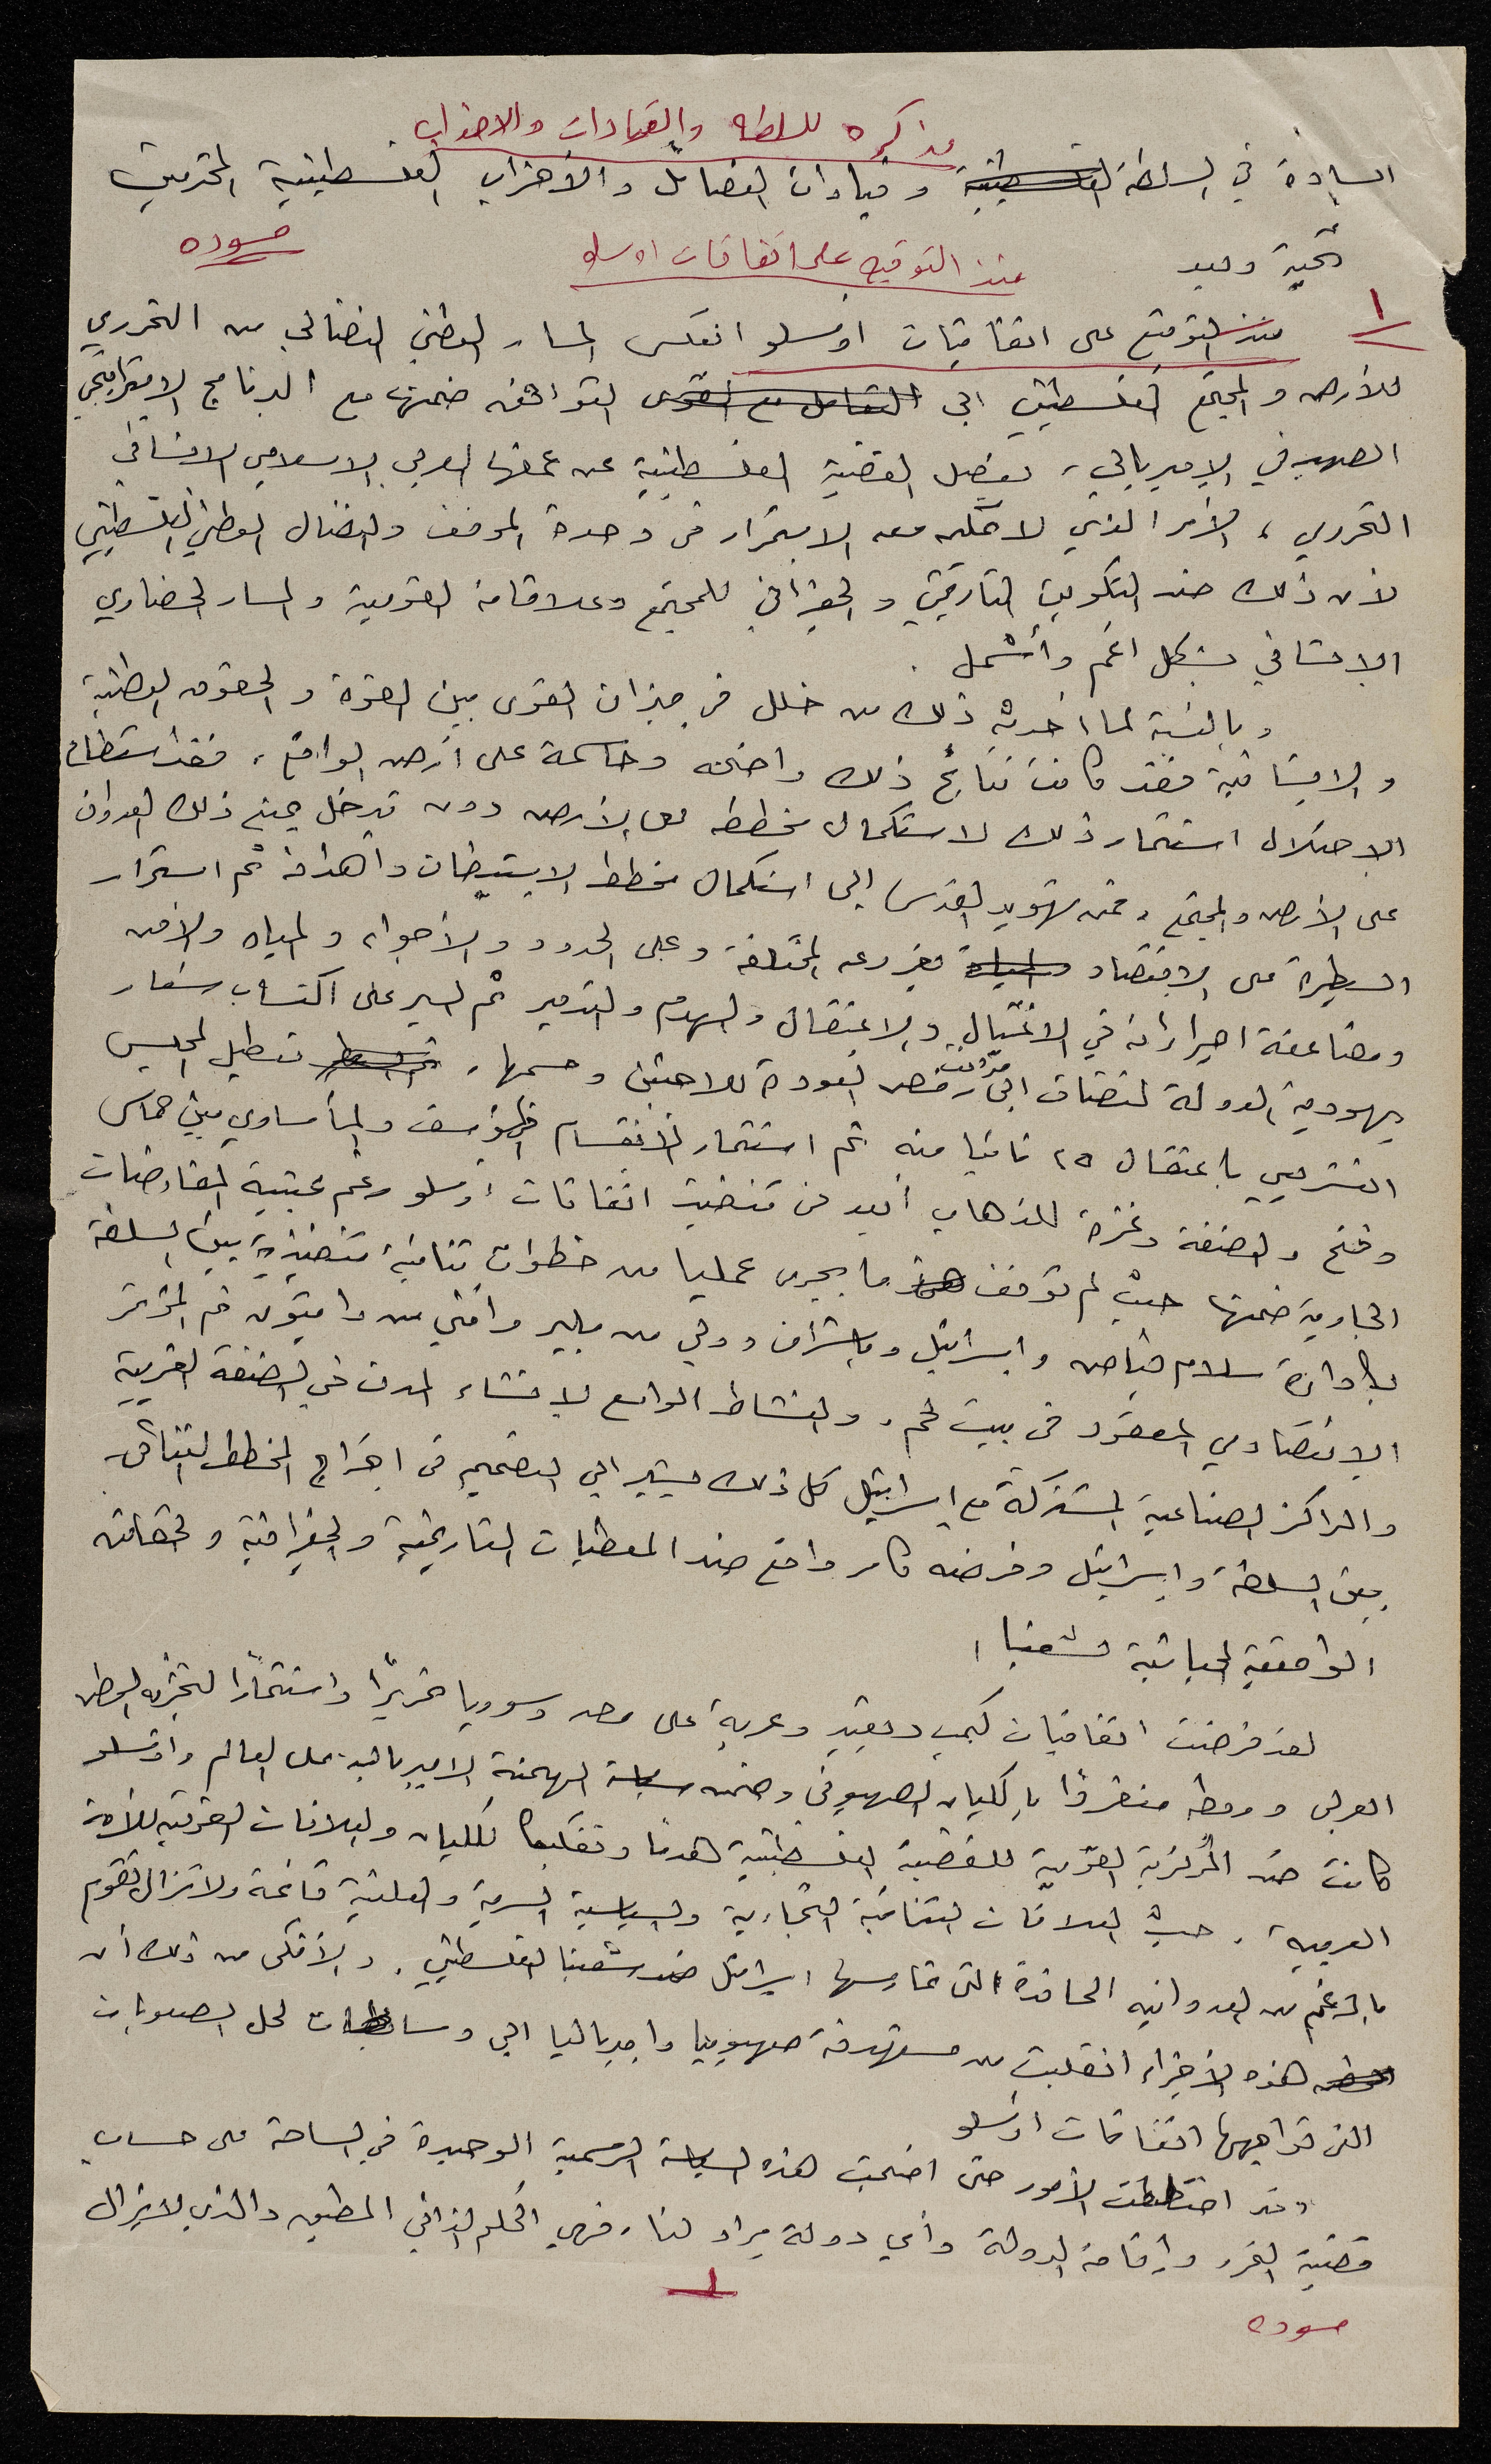 مذكره للسلطه والقيادات والاحزاب
السادة في السلطة الفلسطينية وقيادات الفصائل والأحزاب الفلسطينية المحترمين
تحية وبعد
منذ التوقيع على اتفاقات اوسلو
مسوده
١
منذ التوقيع على اتفاقيات اوسلو انعكس المسار الوطني النضالي من التحرري
للأرض والمجتمع الفلسطيني الى التعامل مع القوى التوافق ضمنها مع البرنامج الاستراتيجي
الصهيوني الإمبريالي، بفصل القضية الفلسطينية عن عمقها العربي الاسلامي الانساني
التحرري، الأمر الذي لا يمكن معه الاستمرار في وحدة الموقف والنضال الوطني الفلسطيني
لان ذلك ضد التكوين التاريخي والجغرافي للمجتمع وعلاقاته القومية والمسار الحضاري
الانساني بشكل اعم وأشمل.
وبالنسبة لما احدثه ذلك من خلل في ميزان القوى بين القوة والحقوق الوطنية
والانسانية فقد كانت نتائج ذلك واضحه وحاسمة على ارض الواقع، فقد استطاع
الاحتلال استثمار ذلك لاستكمال مخططه على الأرض دون تدخل يمنع ذلك العدوان
على الأرض والمجتمع، فمن تهويد القدس إلى استكمال مخطط الاستيطان واهدافه ثم استمرار
السيطرة على الاقتصاد والمياه بفروعه المختلفة وعلى الحدود والأجواء والمياه والأمن
ومضاعفة اجراءاته في الاغتيال والاعتقال والهدم والتدمير ثم السير على اكتساب شعار
يهودية الدولة لتضاف الى رفض العودة للاجئين وحسمها، تعطيل المجلس
التشريعي باعتقال ٤٥ نائبا منه ثم استثمار الانقسام المؤسف والمأساوي بين حماس
وفتح والضفة وغزة للذهاب أبعد في تنفيذ اتفاقات اوسلو رغم عبثية المفاوضات
الجارية ضمنها حيث لم توقف هذه ما يجري عمليا من خطوات ثنائية تنفيذية بين السلطة
بإدارة سلام فياض واسرائيل وباشراف دولي من بلير وامني من دايتون ثم المؤتمر
الاقتصادي المعقود في بيت لحم، والنشاط الواسع لإنشاء المدن في الضفة الغربية
والمراكز الصناعية المشتركة مع اسرائيل كل ذلك يشير الى التصميم في اخراج المخطط الثنائي
بين السلطة واسرائيل وفرضه كأمر واقع ضد المعطيات التاريخية والجغرافية والحقائق
الواقعية الحياتية لشعبنا.
لقد فرضت اتفاقيات كمب ديفيد وعربة على مصر وسوريا تمريرًا واستثمارًا لتجزئة الوطن
العربي وربطه منفردًا بالكيان الصهيوني وضمن سياسة الهيمنة الامبريالية على العالم واوسلو
كانت ضد المركزية القومية للقضية الفلسطينية هدمًا وتفكيكا للكيان والعلاقات القومية للأمة
العربية، حيث العلاقات الثنائية التجارية والسياسية السرية والعلنية قائمة ولا تزال تقوم
بالرغم من العدوانيه الحاقدة التي تمارسها اسرائيل ضد شعبنا الفلسطيني، والأنكى من ذلك أن
هذه الأجزاء انقلبت من مستهدفة صهيونيا وامبرياليا الى وساطات لحل الصعوبات
التي تواجهها اتفاقات اوسلو
وقد اختلطت الأمور حتى اضحت هذه السياسة الرسمية الوحيدة في الساحة على حساب
قضية التحرر وإقامة الدولة وأي دولة يراد لنا، فهي الحكم الذاتي المطبق والذي لايزال
١
مسوده